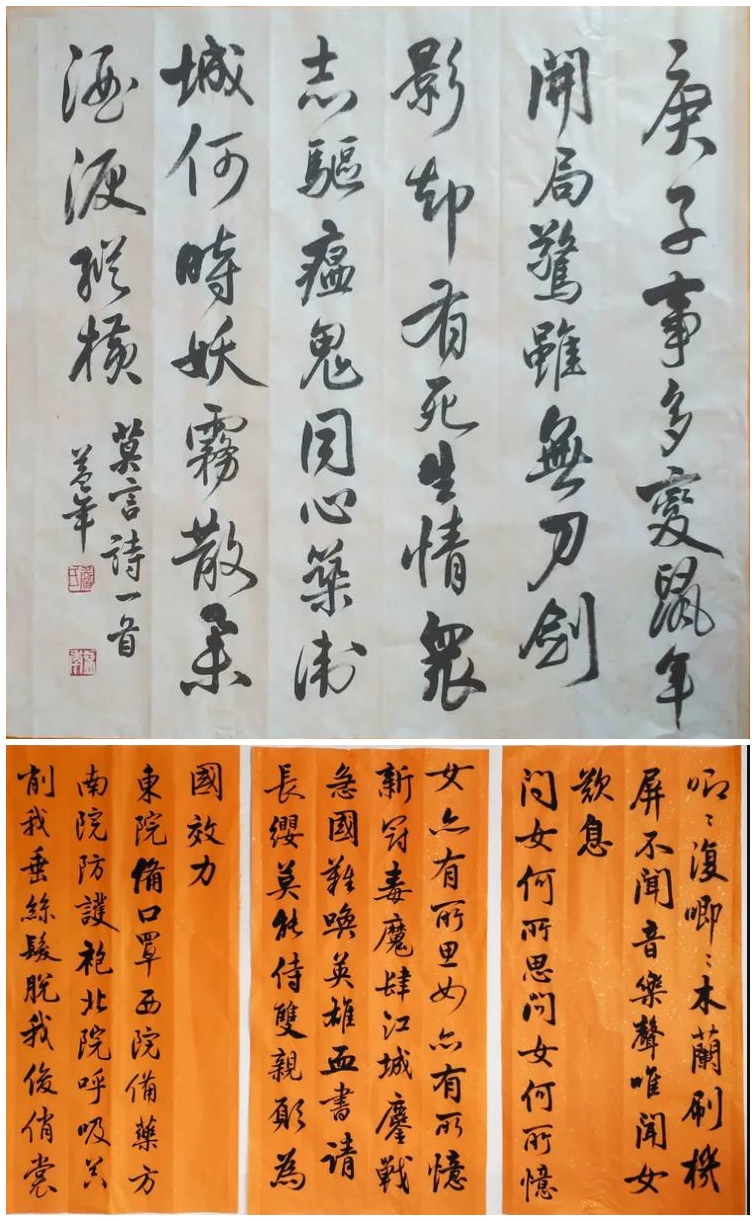 庚子事多變鼠年
開局驚雖無刀劍
影却有死生情眾
志驅瘟鬼同心築衛
城何時妖霧散举
酒淚縱橫
莫言詩一首
唧〻復唧〻木蘭刷機
屏不聞音樂聲唯聞女
歎息
問女何所思問女何所憶
女亦有所思女亦有所憶
新冠毒魔肆江城鏖戰
急國難喚英雄血書請
長纓莫能侍雙親願為
國效力
東院備口罩西院備藥方
南院防護袍北院呼吸
削我垂絲髮脫我俊俏裳